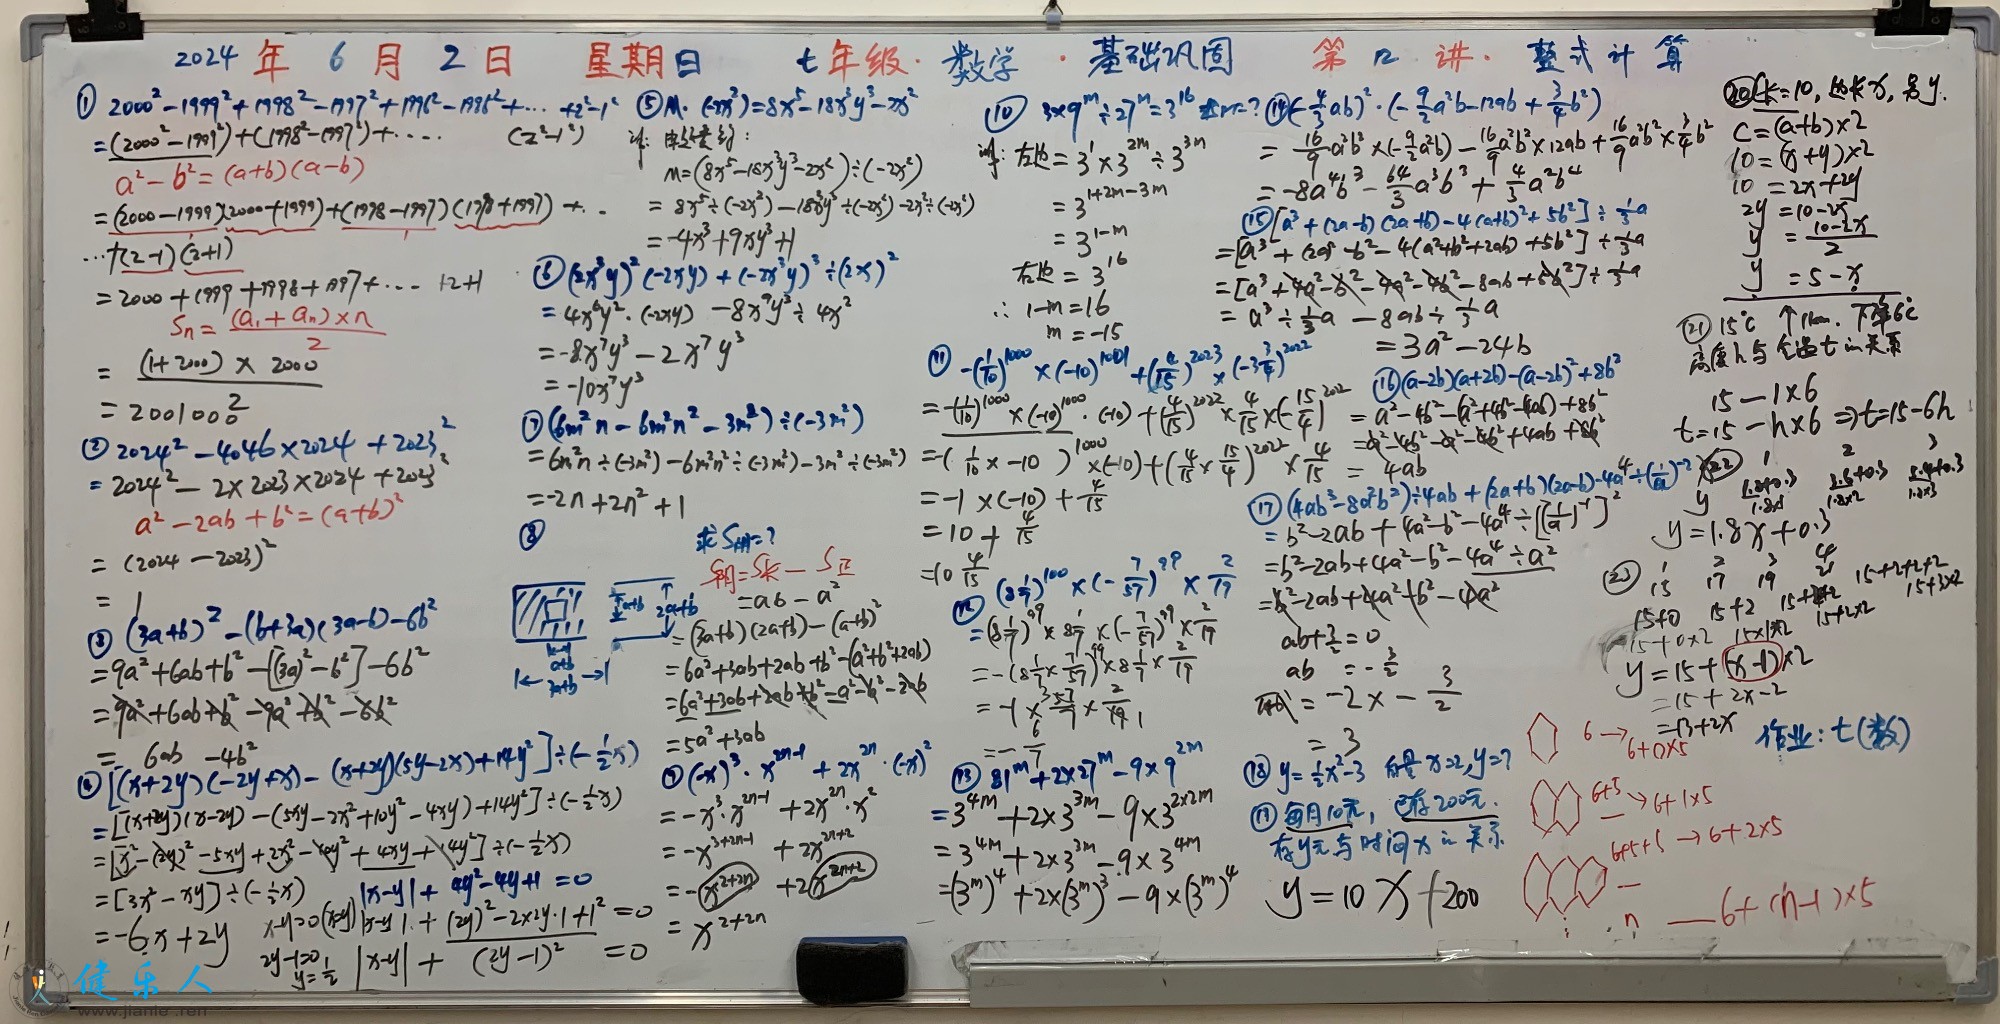 2024年6月2日 星期日 七年级·数学·基础巩固 第12讲·整式计算
① 2000²-1999²+1998²-1997²+1996²-1995²+… +2²-1²
=(2000²-1999²)+(1998²-1997²)+…… (2²-1²)
a²-b²=(a+b)(a-b)
=(2000-1999)(2000+1999)+(1998-1997)(1998+1997)+‥
…+(2-1)(2+1)
=2000+1999+1998+1997+… +2+1
Sn=(a₁+an)×n/2
=(1+2000)×2000/2
=2001000
② 2024²-4046×2024+2023²
=2024²-2×2023×2024+2023²
a²-2ab+b²=(a+b)²
=(2024-2023)²
=1
③ (3a+b)²-(b+3a)(3a-b)-6b²
=9a²+6ab+b²-[(3a)²-b²]-6b²
=9a²+6ab+b²-9a²+b²-6b²
=6ab-4b²
④ [(x+2y)(-2y+x)-(x+2y)(5y-2x)+14y²]÷(-1/2x)
=[(x+2y)(x-2y)-(5xy-2x²+10y²-4xy)+14y²]÷(-1/2x)
=[x²-(2y)²-5xy+2x²-10y²+4xy+14y²]÷(-1/2x)
=[3x²-xy]÷(-1/2x)
=-6x+2y
|x-y|+4y²-4y+1=0
x-y=0(x=y) |x-y|+(2y)²-2×2y·1+1²=0
2y-1=0
y=1/2
|x-y|+(2y-1)²=0
⑤ M·(-2x²)=8x⁵-18x³y³-2x²
M=(8x⁵-18x³y³-2x²)÷(-2x²)
=8x⁵÷(-2x²)-18x³y³÷(-2x²)-2x²÷(-2x²)
=-4x³+9xy³+1
⑥ (2x³y)²(-2xy)+(-2x³y)³÷(2x)²
=4x⁶y²·(-2xy)-8x⁹y³÷4x²
=-8x⁷y³-2x⁷y³
=-10x⁷y³
⑦ (6m²n-6m²n²-3m²)÷(-3m²)
=6m²n÷(-3m²)-6m²n²÷(-3m²)-3m²÷(-3m²)
=-2n+2n²+1
⑧ 求S阴=?
a+b 2a+b
a+b
3a+b
S阴=S长-S正
=ab-a²
=(3a+b)(2a+b)-(a+b)²
=6a²+3ab+2ab+b²-(a²+b²+2ab)
=6a²+3ab+2ab+b²-a²-b²-2ab
=5a²+3ab
⑨ (-x)³·x²ⁿ⁻¹+2x²ⁿ·(-x)²
=-x³·x²ⁿ⁻¹+2x²ⁿ·x²
=-x³⁺²ⁿ⁻¹+2x²ⁿ⁺²
=-x²⁺²ⁿ+2x²ⁿ⁺²
=x²⁺²ⁿ
⑩ 3×9ᵐ÷27ᵐ=3¹⁶ 求m=?
解:左边=3¹×3²ᵐ÷3³ᵐ
=3¹⁺²ᵐ⁻³ᵐ
=3¹⁻ᵐ
右边=3¹⁶
∴1-m=16
m=-15
⑪ -(1/10)¹⁰⁰⁰×(-10)¹⁰⁰¹+(4/15)²⁰²³×(-3 3/4)²⁰²²
=-(1/10)¹⁰⁰⁰×(-10)¹⁰⁰⁰·(-10)+(4/15)²⁰²²×4/15×(-15/4)²⁰²²
=-(1/10×-10)¹⁰⁰⁰×(-10)+(4/15×15/4)²⁰²²×4/15
=-1×(-10)+4/15
=10+4/15
=10 4/15
⑫ (8 1/7)¹⁰⁰×(-7/57)⁹⁹×2/19
=(8 1/7)⁹⁹×8 1/7×(-7/57)⁹⁹×2/19
=-(8 1/7×7/57)⁹⁹×8 1/7×2/19
=-1×57/7×2/19
=-6/7
⑬ 81ᵐ+2×27ᵐ-9×9²ᵐ
=3⁴ᵐ+2×3³ᵐ-9×3²ˣ²ᵐ
=3⁴ᵐ+2×3³ᵐ-9×3⁴ᵐ
=(3ᵐ)⁴+2×(3ᵐ)³-9×(3ᵐ)⁴
⑭ (-4/3ab)²·(-9/2a²b-12ab+3/4b²)
=16/9a²b²×(-9/2a²b)-16/9a²b²×12ab+16/9a²b²×3/4b²
=-8a⁴b³-64/3a³b³+4/3a²b⁴
⑮ [a³+(2a-b)(2a+b)-4(a+b)²+5b²]÷1/3a
=[a³+(2a)²-b²-4(a²+b²+2ab)+5b²]÷1/3a
=[a³+4a²-b²-4a²-4b²-8ab+5b²]÷1/3a
=a³÷1/3a-8ab÷1/3a
=3a²-24b
⑯ (a-2b)(a+2b)-(a-2b)²+8b²
=a²-4b²-(a²+4b²-4ab)+8b²
=a²-4b²-a²-4b²+4ab+8b²
=4ab
⑰ (4ab³-8a²b²)÷4ab+(2a+b)(2a-b)-4a⁴÷(1/a)⁻²
=b²-2ab+4a²-b²-4a⁴÷[(1/a)⁻¹]²
=b²-2ab+4a²-b²-4a⁴÷a²
=b²-2ab+4a²-b²-4a²
ab+3/2=0
ab=-3/2
=-2×-3/2
=3
⑱ y=1/2x²-3 x=2,y=?
⑲ 每月10元,已存200元.
存y元与时间x的关系
y=10x+200
⑳ C长=10,边长x,另y.
C=(a+b)×2
10=(x+y)×2
10=2x+2y
2y=10-2x
y=10-2x/2
y=5-x
㉑ 15℃ ↑1km.下降6℃
高度h与气温t的关系
15-1×6
t=15-h×6⇒t=15-6h
㉒ x 1 2 3
y 1.8+0.3 3.6+0.3 5.4+0.3
1.8×1 1.8×2 1.8×3
y=1.8x+0.3
㉓ 1 2 3 4
15 17 19 21
15+0 15+2 15+2+2 15+2+2+2
15+0×2 15+1×2 15+2×2 15+3×2
y=15+(x-1)×2
=15+2x-2
=13+2x
作业:七(数)
6→6+0×5
6+5→6+1×5
6+5+5→6+2×5
n — 6+(n-1)×5
健乐人
www.jianle.ren